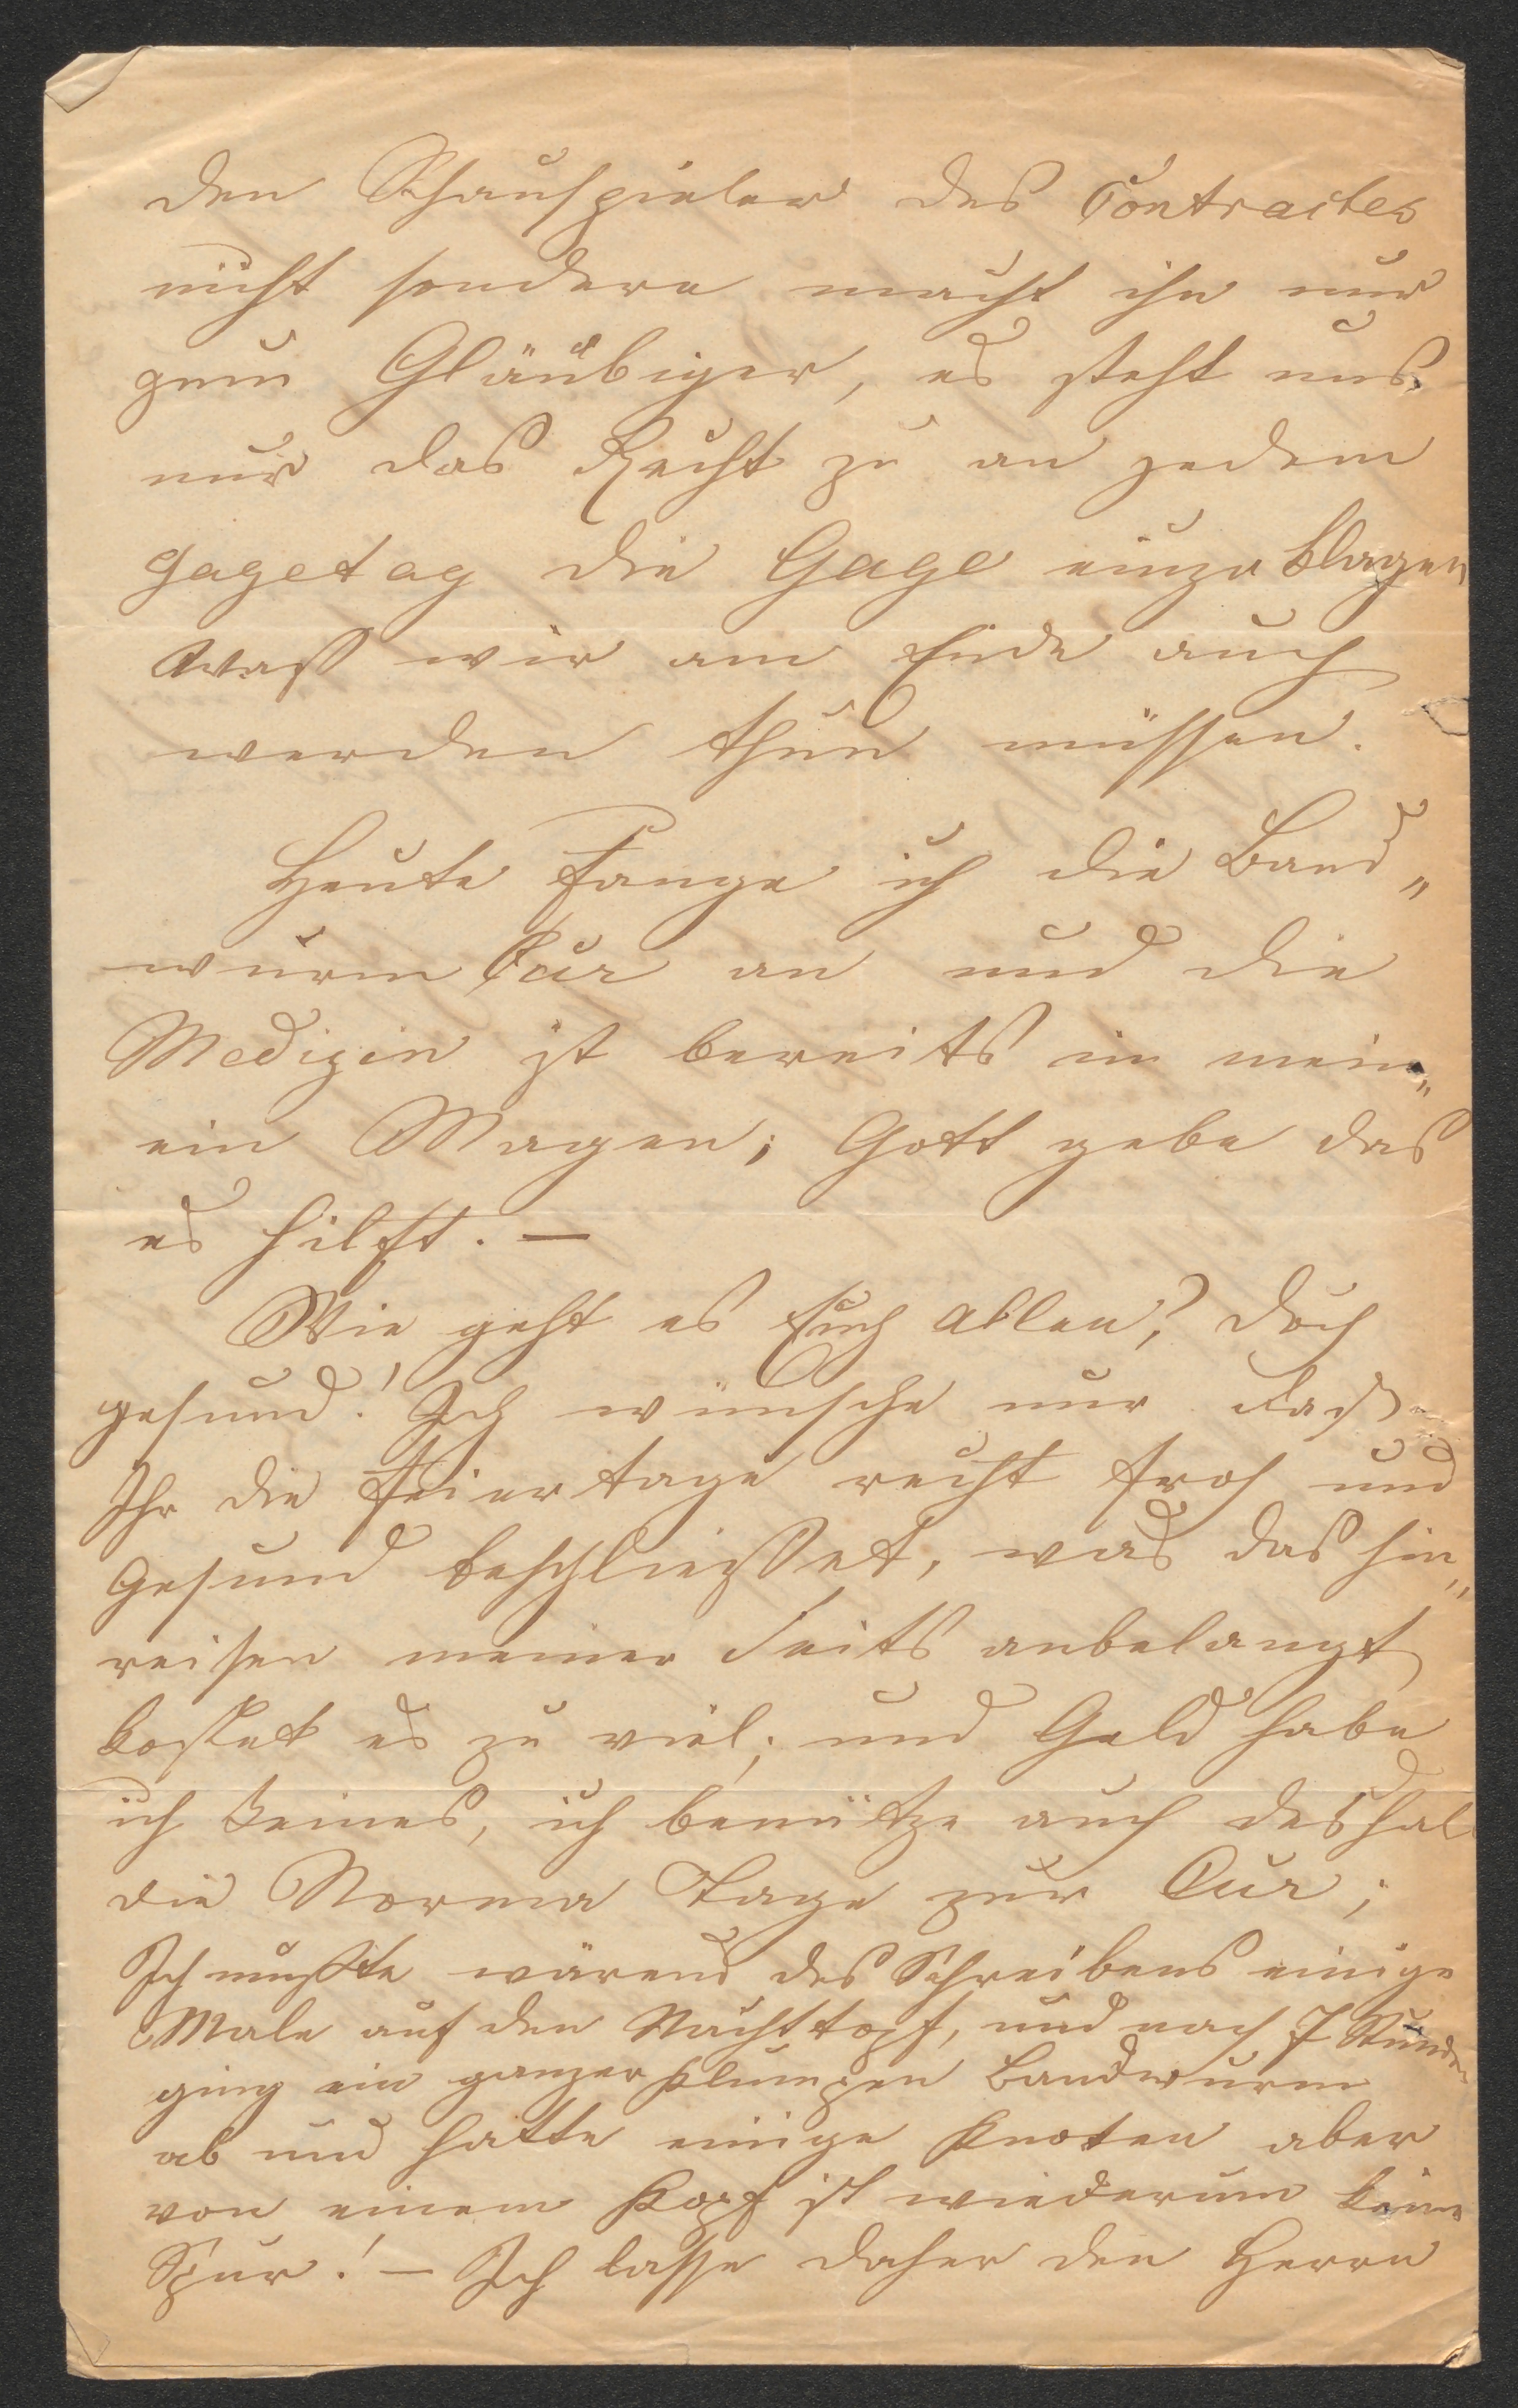 den Schauspieler des Contractes
nicht sondern macht ihn nur
zum Gläubiger, es steht uns
nur das Recht zu an jedem
Gagetag die Gage einzuklagen
was wir am Ende auch
werden thun müssen.
Heute fange ich die Band„
wurm Cur an und die
Medizin ist bereits in mein„
ein Magen; Gott gebe das
es hilft. —
Wie geht es Euch allen? doch
gesund! Ich wünsche nur daß
Ihr die Feiertage recht froh und
Gesund beschließet, was das hin„
reisen meiner Seits anbelangt
kostet es zu viel; und Geld habe
ich keines, ich benütze auch deshal
die Norma Tage zur Cur;
Ich mußte wärend des Schreibens einige
Male auf den Nachttopf, und nach 7 Stunden
ging ein ganzer Klumpen Bandwurm
ab und hatte einige Knoten aber
von einem Kopf ist wiederum keine
Spur! — Ich lasse daher den Herrn